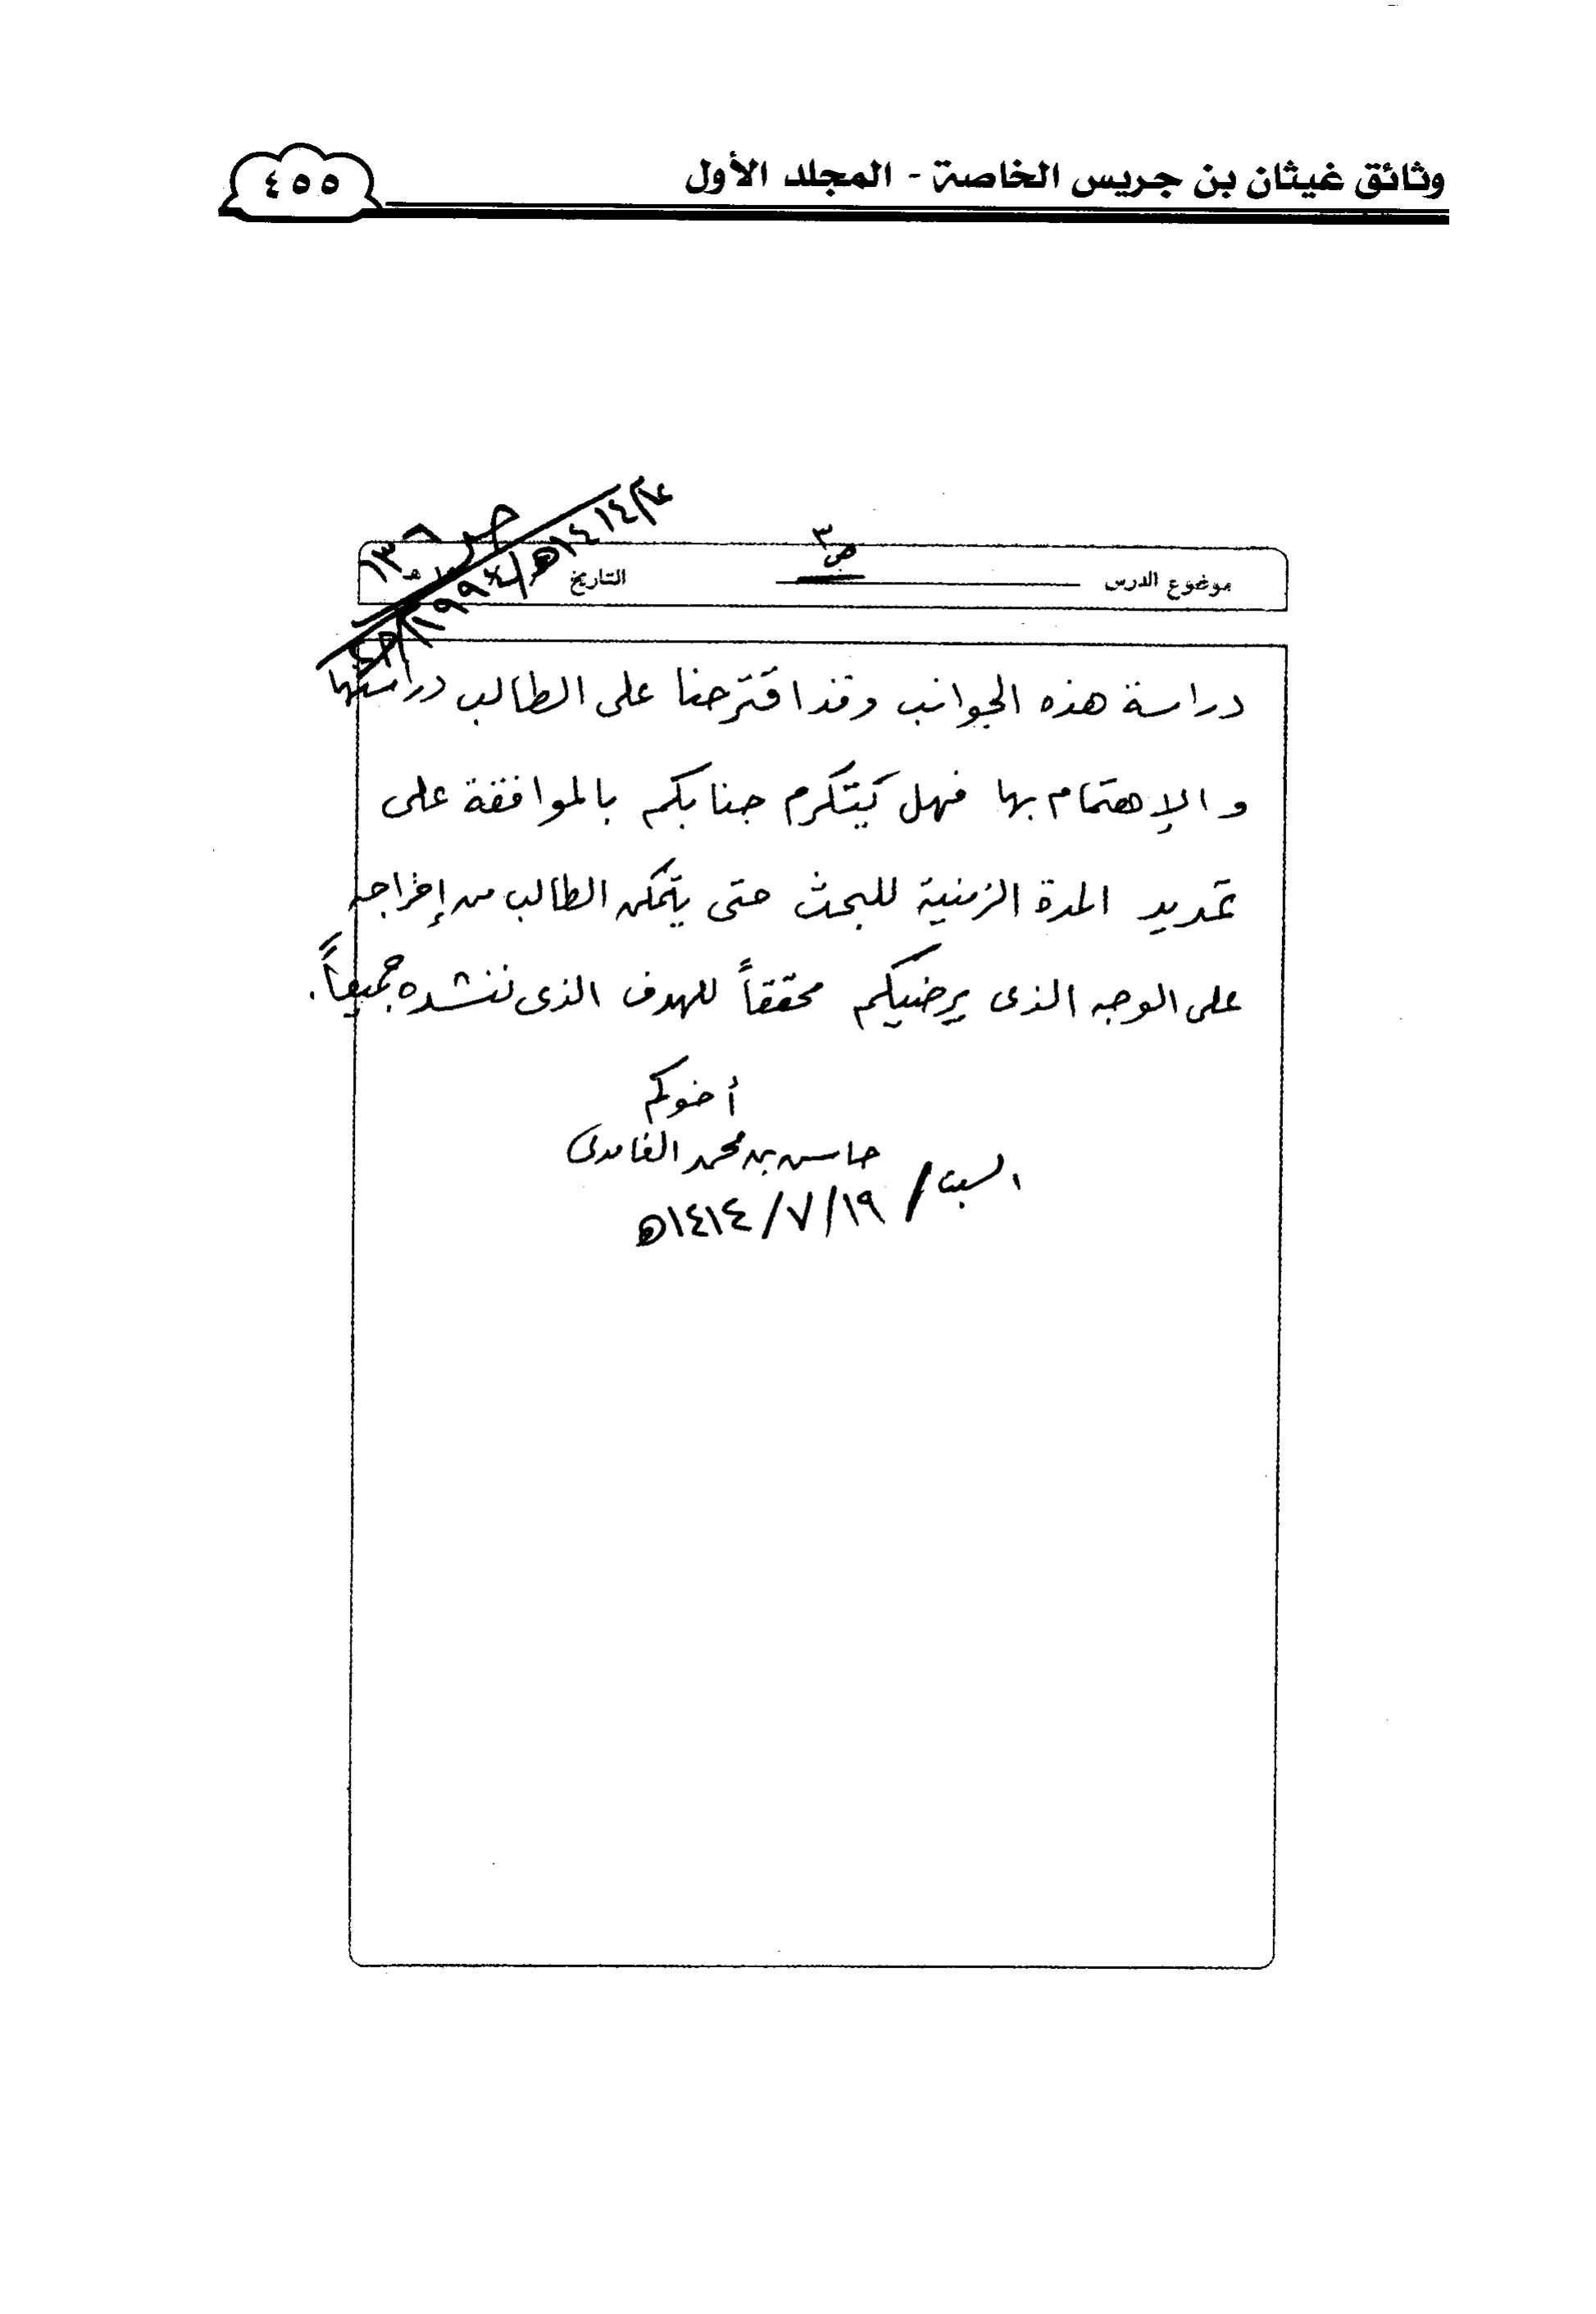 وثائق غيثان بن جريس الخاصة - المجلد الأول
٤٥٥
ص٣
موضوع الدرس
التاريخ
دراسة هذه الجوانب وقد اقترحنا على الطالب دراستها
والإهتمام بها فهل يتكرم جنابكم بالموافقة على
تمديد المدة الزمنية للبحث حتى يتمكن الطالب من إخراجه
على الوجه الذى يرضيكم محققاً للهدف الذى ننشده جميعاً.
أخوكم
حاسن بن محمد الغامدى
السبت / ١٩ / ٧ / ١٤١٤ھ